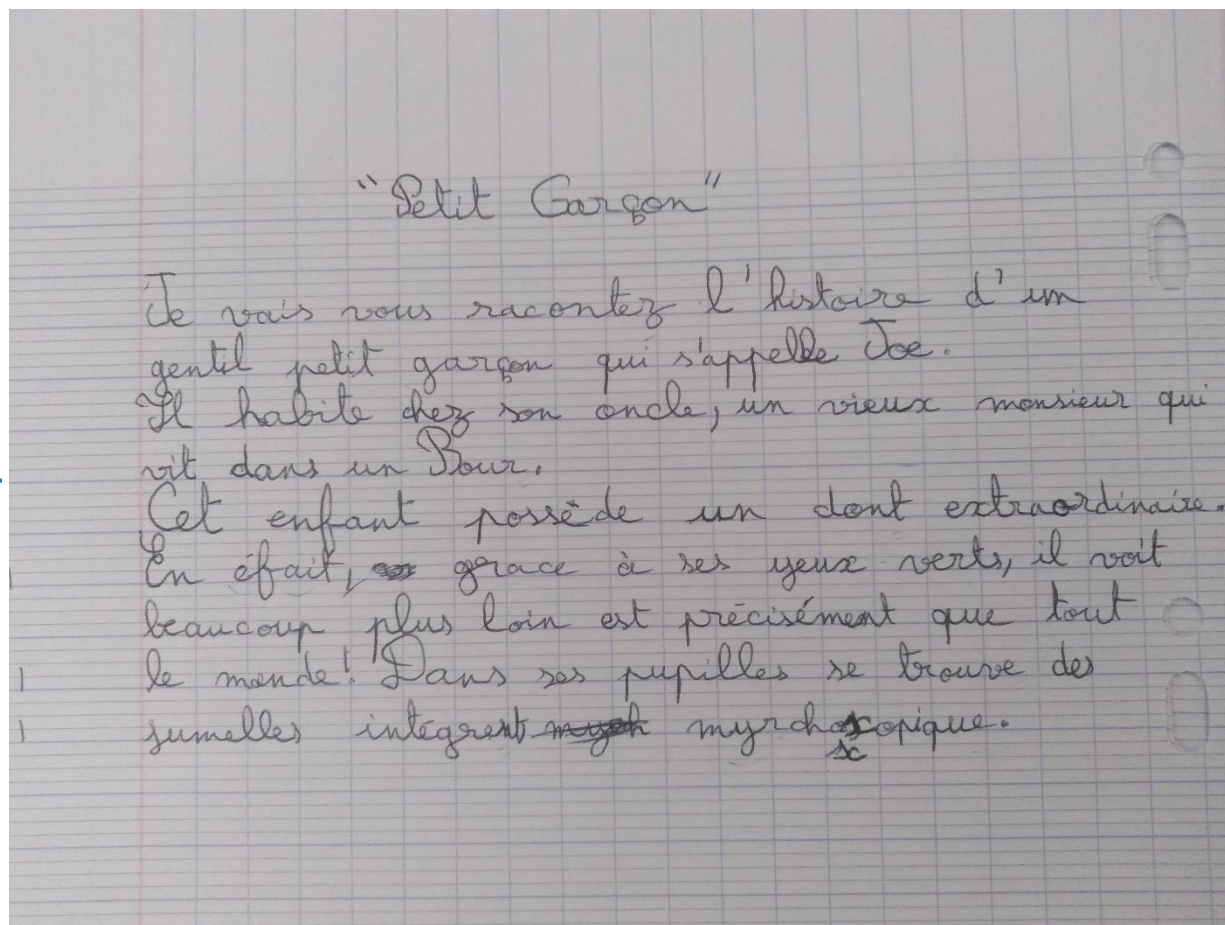 "Petit Garçon"
Je vais vous racontez l'histoire d'un
gentil petit garçon qui s'appelle Joe.
Il habite chez son oncle, un vieux monsieur qui
vit dans un Bour.
Cet enfant possède un dont extraordinaire.
En éfait, grace à ses yeux verts, il voit
beaucoup plus loin est précisément que tout
le monde! Dans ses pupilles se trouve des
jumelles intégrent myrchoscopique.